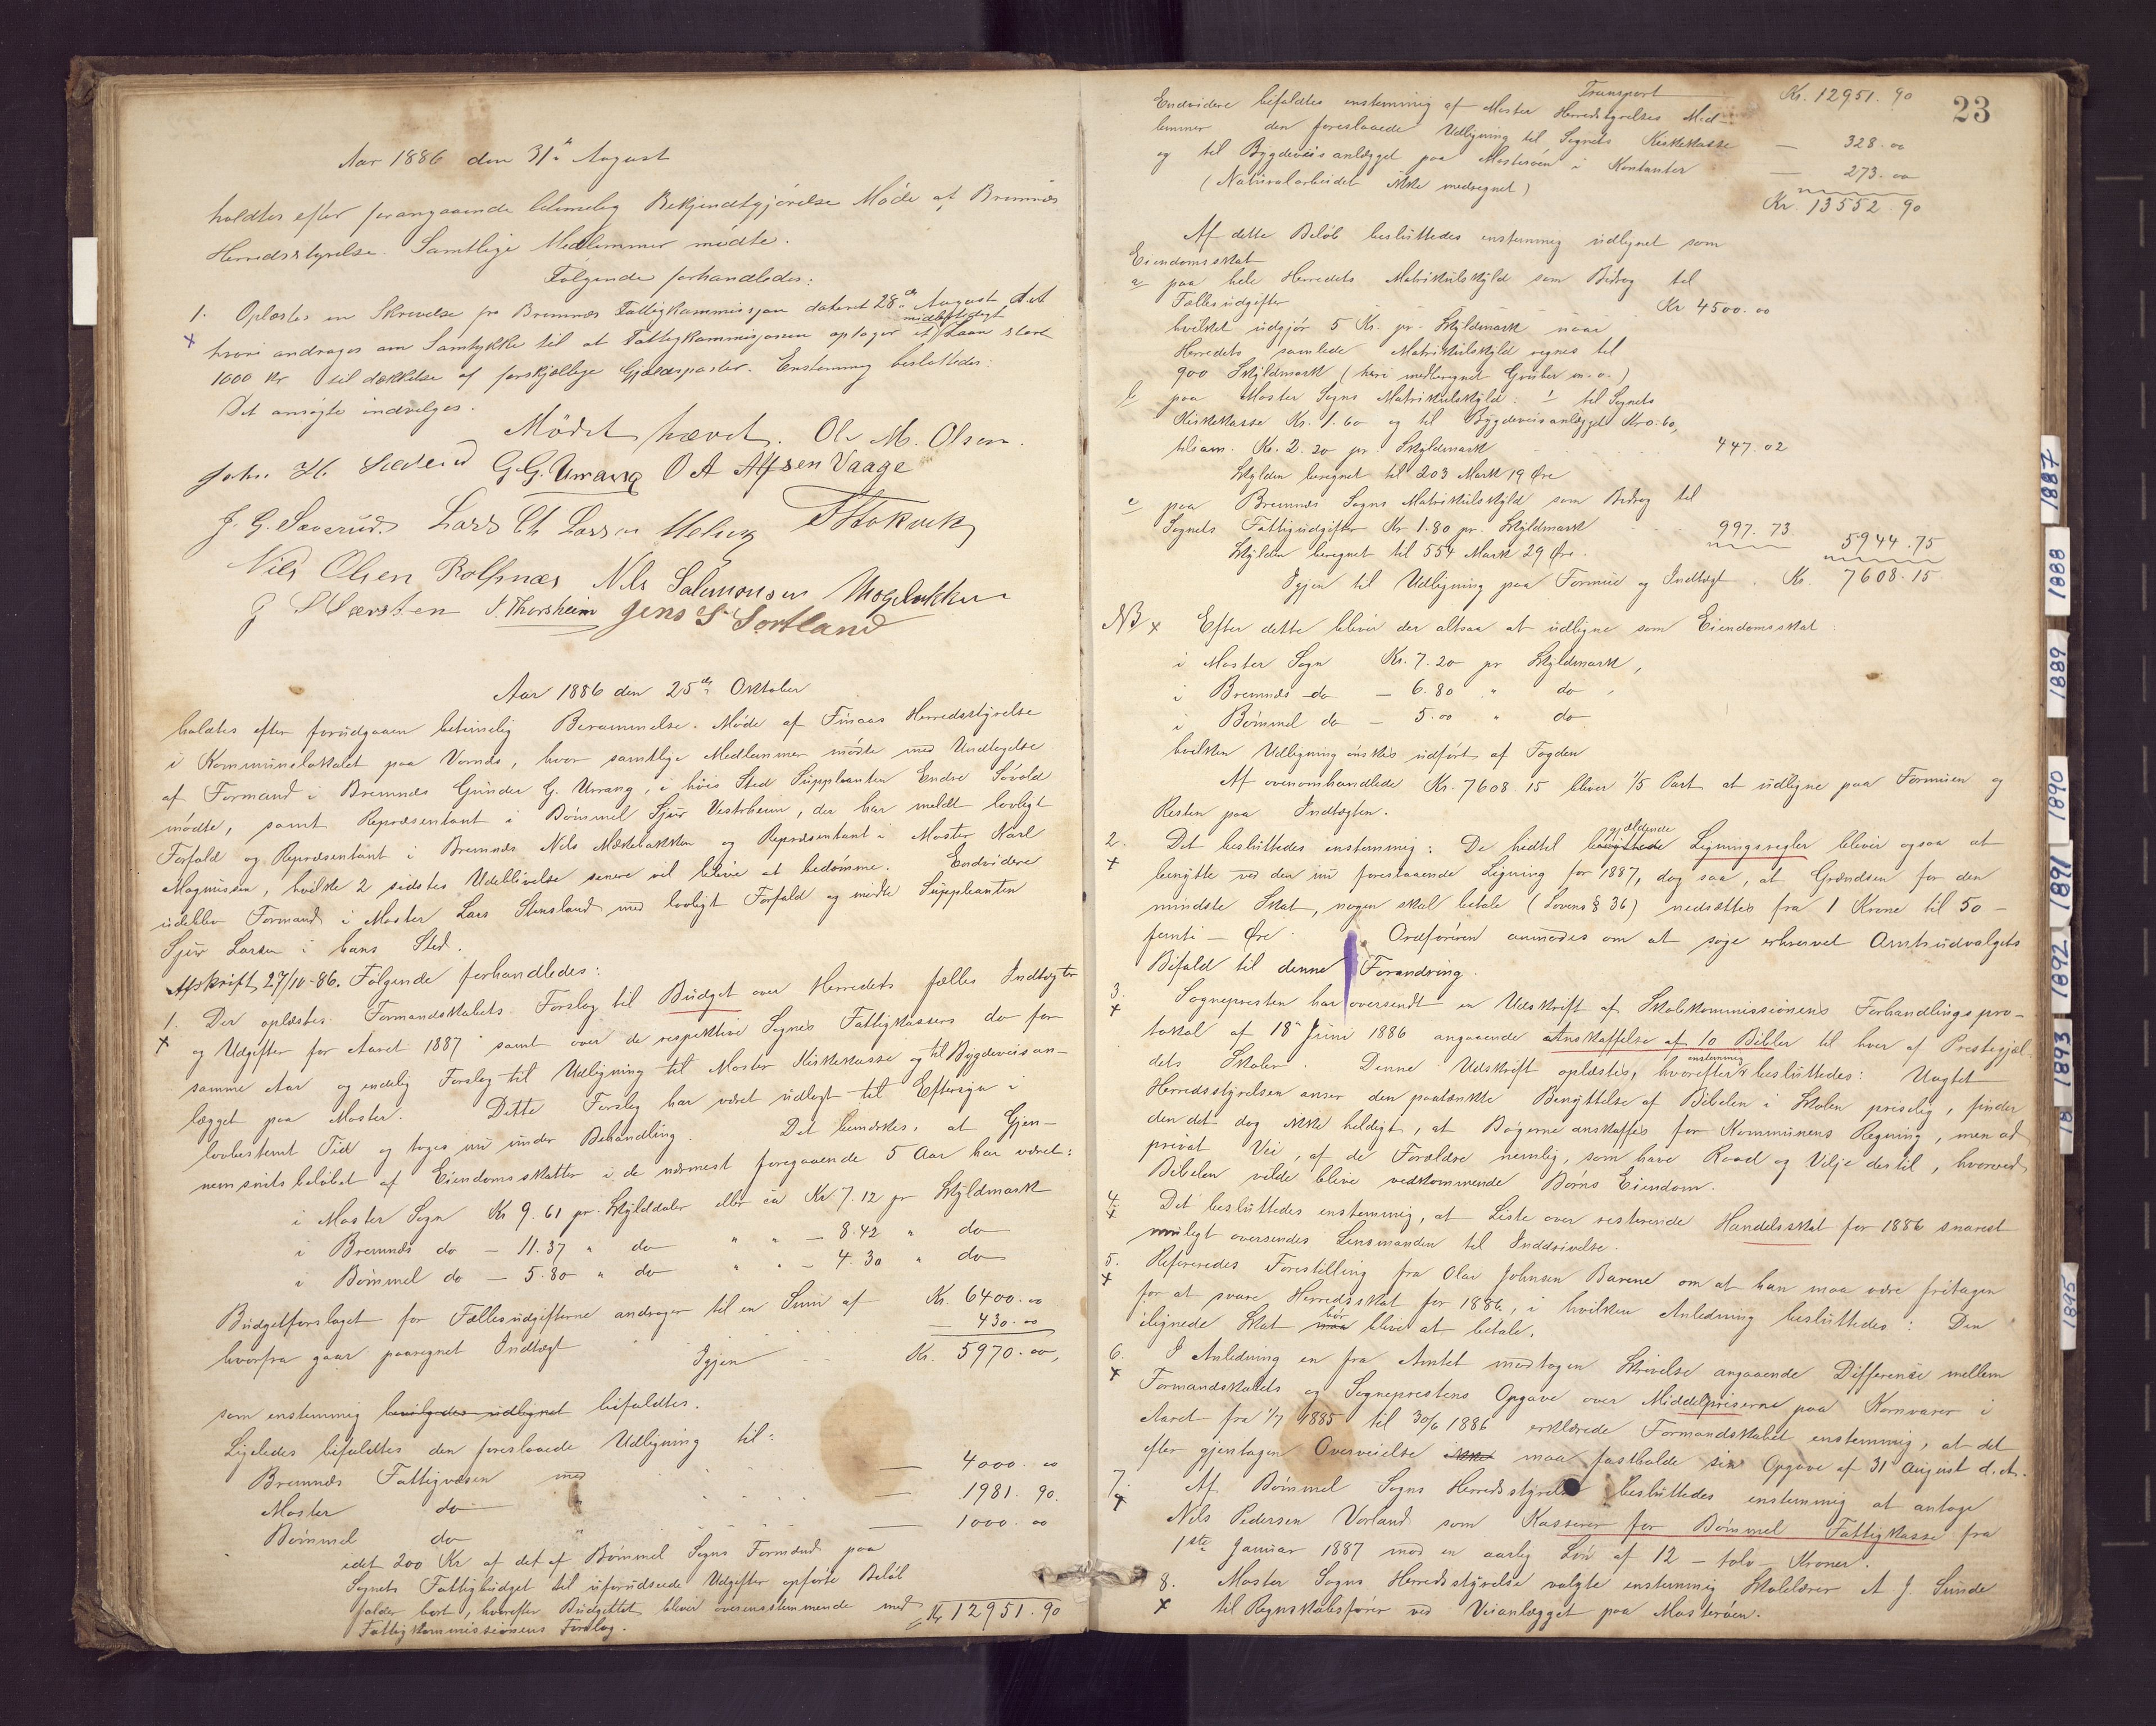 Aar 1886 den 31te August
holdtes efter forangaaende belimelig Bekjendtgjörelse Möde af Bremnæs
Herredsstyrelse. Samtlige Medlemmer mödte.
Fölgende forhandledes:
1. Oplæstes en Skrivelse fra Bremnæs Fattigkommissjon dateret 28de August d.A
hvori andrages om Samtykke til at Fattigkommisjonen optager et midlertidigt Laan stort
1000 Kr til dækkelse af forskjellige Gjældsposter. Enstemmig besluttedes:
Det ansögte indvilges.
Mödet hævet. Ole M. Olsen.
Johs. H. G.G. Urrang O A Alfsen Vaage
J. G. Saverud. Lars Ch Larsen Meling
Nils Olsen Rolfsnæs Nils Salemonsen Mögelbakken
T. Thorsheim Jens S Sortland
Aar 1886 den 25de Oktober
holdtes efter forudgaaen betimelig Berammelse Möde af Finaas Herredsstyrelse
i Kommunelokalet paa Vornæs, hvor samtlige Medlemmer mödte med Undtagelse
af Formand i Bremnæs Gunder G. Urrang, i hvis Sted Suppleanten Endre Lövold
mödte, samt Repræsentant i Bömmel Sjur Vestrheim, der har meldt lovligt
Forfald og Repræsentant i Bremnæs Nils Mækebakken og Repræsentant i Moster Karl
Magnussen, hvilke 2 sidstes Udeblivelse senere vil blive at bedömme. Endvidere
udeblev Formand i Moster Lars Stensland med lovligt Forfald og mödte Suppleanten
Sjur Larsen i hans Sted.
Afskrift 27/10-86. Fölgende forhandledes:
1. Der oplæstes Formandskabets Forslag til Budget over Herredets fælles Indtægter
og Udgifter for Aaret 1887 samt over de respektive Sognes Fattigkassers do for
samme Aar og endelig Forslag til Udligning til Moster Kirkekasse og til Bygdeveisan-
lægget paa Moster. Dette Forslag har været udlagt til Eftersyn i
lovbestemt Tid og toges nu under Behandling. Det bemærkes, at Gjen-
nemsnitsbelöbet af Eiendomsskatten i de nærmest foregaaende 5 Aar har været:
i Moster Sogn Kr 9.61 pr. Skylddaler eller ca Kr. 7.12 pr Skyldmark
i Bremnæs do — 11.37 " do " " — 8.42 " do
i Bömmel do — 5.80 " do " " — 4.30 " do
Budgetforslaget for Fællesudgifterne andrager til en Sum af Kr. 6400.00
hvorfra gaar paaregnet Indtægt — 430.00
Igjen Kr. 5970.00,
som enstemmig bevilgedes udlignet bifaldtes.
Ligeledes bifaldtes den foreslaaede Udligning til:
Bremnæs Fattigvæsen med — 4000.00
Moster do — 1981.90.
Bömmel do " — 1000.00
idet 200 Kr af det af Bömmel Sogns Formænd paa
Sognets Fattigbudget til uforudseede Udgifter opförte Belöb
falder bort, hvorefter Budgettet bliver overensstemmende med
Fattigkommissionens Forslag. Kr 12951.90
23
Transport Kr. 12951.90
Endvidere bifaldtes enstemmig af Moster Herredsstyrelses Med-
lemmer den foreslaaede Udligning til Sognets Kirkekasse — 328.00
og til Bygdeveisanlægget paa Mosteröen i Kontanter — 273.00
(Naturalarbeidet ikke medregnet) Kr. 13552.90
Af dette Belöb besluttedes enstemmig udlignet som
Eiendomsskat
a paa hele Herredets Matrikulskyld som Bidrag til
Fællesudgifter Kr 4500.00
hvilket udgjör 5 Kr. pr. Skyldmark naar
Herredets samlede Matrikulskyld regnes til
900 Skyldmark (heri medberegnet Gruber m.v.)
b paa Moster Sogns Matrikulskyld: til Sognets
Kirkekasse Kr. 1.60 og til Bygdeveisanlægget Kr 0.60,
tilsam. Kr. 2.20 pr Skyldmark 447.02
Skylden beregnet til 203 Mark 19 Öre
c paa Bremnæs Sogns Matrikulskyld som Bidrag til
Sognets Fattigudgifter Kr 1.80 pr. Skyldmark 997.73 5944.75
Skylden beregnet til 554 Mark 29 Öre.
Igjen til Udligning paa Formue og Indtægt. Kr. 7608.15
NB x Efter dette bliver der altsaa at udligne som Eiendomsskat:
i Moster Sogn Kr. 7.20 pr Skyldmark,
i Bremnæs do — 6.80 " do,
i Bömmel do — 5.00 " do
hvilken Udligning önskes udfört af Fogden
Af ovenomhandlede Kr. 7608.15 bliver 1/5 Part at udligne paa Formuen og
Resten paa Indtægten.
2. Det besluttedes enstemmig: De hidtil gjældende Ligningsregler bliver ogsaa at
x benytte ved den nu forestaaende Ligning for 1887, dog saa, at Grændsen for den
mindste Skat, nogen skal betale (Lovens § 36) nedsættes fra 1 Krone til 50 –
femti – Öre. Ordföreren anmodes om at söge erhvervet Amtsudvalgets
Bifald til denne Forandring.
3. Sognepresten har oversendt en Udskrift af Skolekommissionens Forhandlingspro-
x tokol af 18de Juni 1886 angaaende Anskaffelse af 10 Bibler til hver af Prestegjæl-
dets Skoler. Denne Udskrift oplæstes, hvorefter enstemmig besluttedes: Uagtet
Herredsstyrelsen anser den paatænkte Benyttelse af Bibelen i Skolen priselig, finder
den det dog ikke heldigt, at Bögerne anskaffes for Kommunens Regning, men ad
privat Vei, af de Forældre nemlig, som have Raad og Vilje dertil, hvorved
Bibelen vilde blive vedkommende Börns Eiendom.
4. Det besluttedes enstemmig, at Liste over resterende Handelsskat for 1886 snarest
x muligt oversendes Lensmanden til Inddrivelse.
5. Refereredes Forestilling fra Olai Johnsen Barene om at han maa være fritagen
x for at svare Herredsskat for 1886, i hvilken Anledning besluttedes: Den
ilignede Skat maa bör blive at betale.
6. I Anledning en fra Amtet modtagen Skrivelse angaaende Differense mellem
x Formandskabets og Sogneprestens Opgave over Middelpriserne paa Kornvarer i
Aaret fra 1/7 1885 til 30/6 1886 erklærede Formandskabet enstemmig, at det
efter gjentagen Overveielse maa fastholde sin Opgave af 31 August d.A.
7. Af Bömmel Sogns Herredsstyrelse besluttedes enstemmig at antage
x Nels Pedersen Vorland som Kasserer for Bömmel Fattigkasse fra
1ste Januar 1887 mod en aarlig Lön af 12 – tolv – Kroner.
8. Moster Sogns Herredsstyrelse valgte enstemmig Skolelærer A J. Sunde
x til Regnskabsförer ved Veianlægget paa Mosteröen.
1887
1888
1889
1890
1891
1892
1893
18
1895